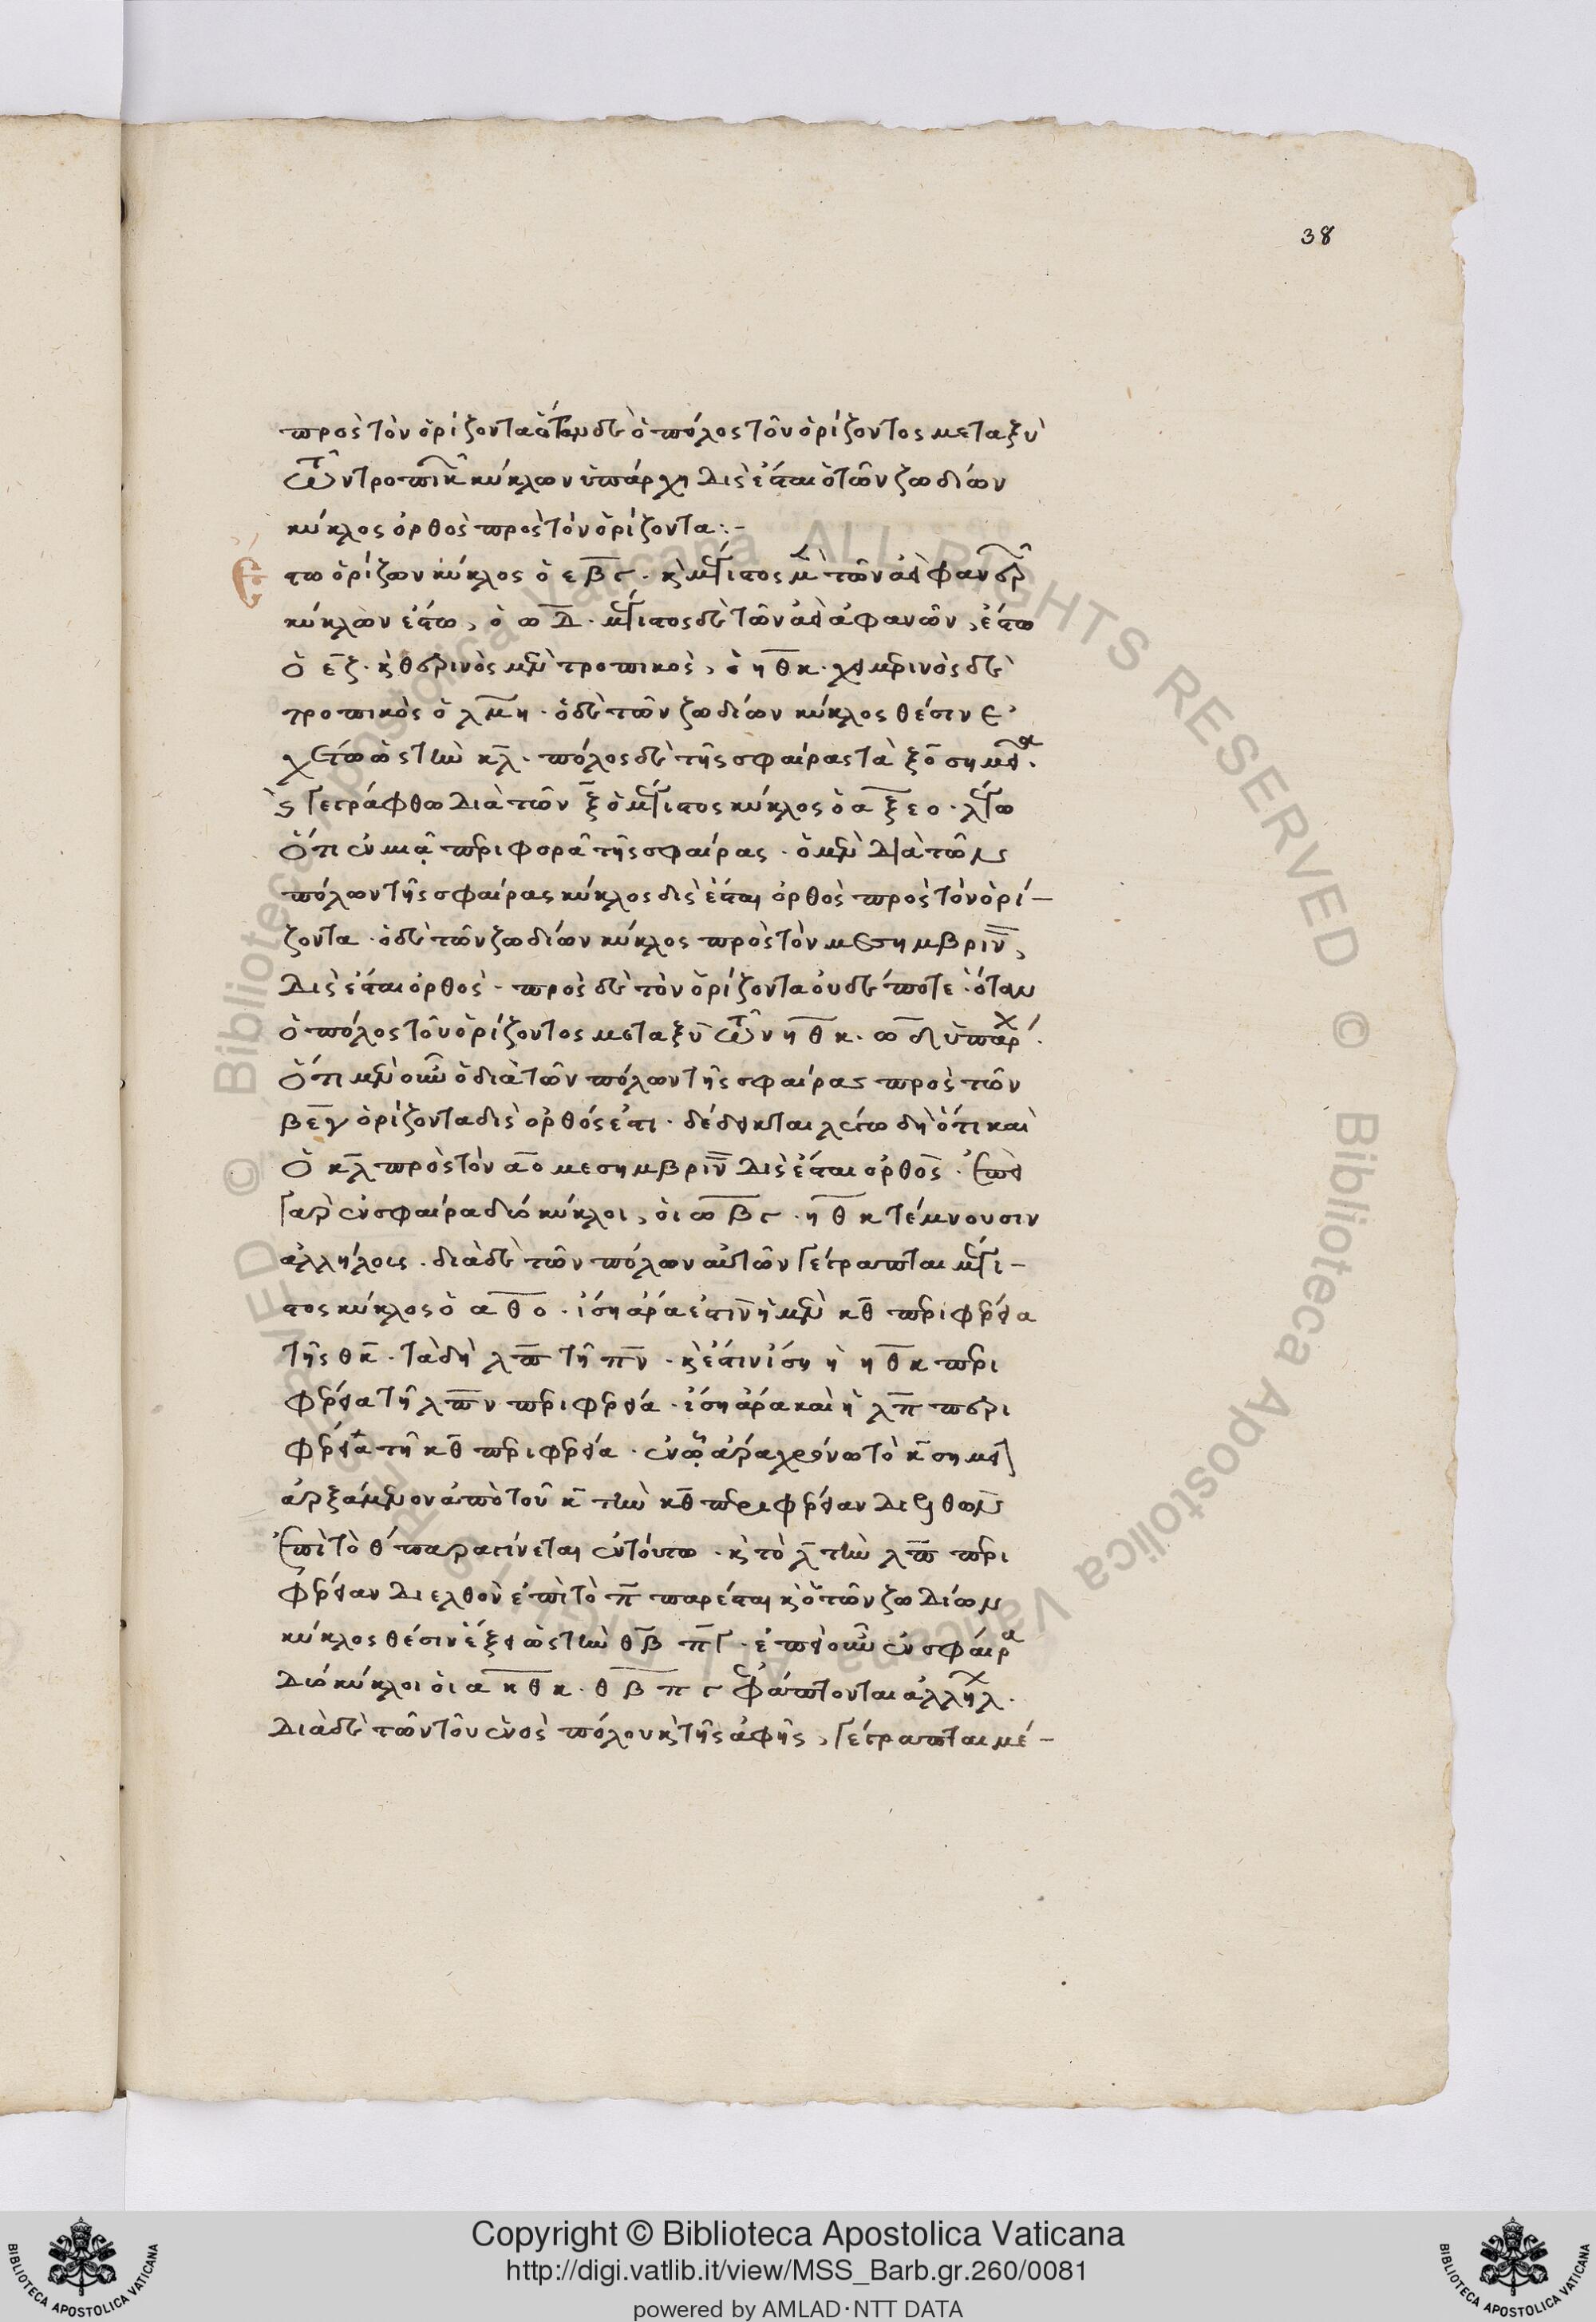 38
πρὸς τὸν ὁρίζοντα ὅταν δὲ ὁ πόλος τοῦ ὁρίζοντος μεταξὺ
τῶν τροπικῶν κύκλων ὑπάρχη δὶς ἔσται ὁ τῶν ζωδίων
κύκλος ὀρθὸς πρὸς τὸν ὁρίζοντα:-
Ἔστω ὁρίζων κύκλος ὁ εβγ. κὶ μέγιστος μὲν τῶν ἀεὶ φανερῶν
κύκλων ἔστω, ὁ ωδ. μέγιστος δὲ τῶν ἀεὶ ἀφανῶν, ἔστω
ὁ εζ. κὶ θερινὸς μὲν τροπικὸς, ὁ ηθκ. χειμερινὸς δὲ
τροπικὸς ὁ λμη. ὁ δὲ τῶν ζωδίων κύκλος θέσιν ἐ
χέτω ὡς τὴν κλ. πόλος δὲ τῆς σφαίρας τὰ ξο σημεῖα.
κὶ γεγράφθω διὰ τῶν ξ ὁ μέγιστος κύκλος ὁ αξεο. λέγω
ὅτι ἐν μιᾷ περιφορᾶ τῆς σφαίρας. ὁ μὲν διὰ τῶν
πόλων τῆς σφαίρας κύκλος δὶς ἔσται ὀρθὸς πρὸς τὸν ὁρί-
ζοντα. ὁ δὲ τῶν ζωδίων κύκλος πρὸς τὸν μεσημβρινὸν,
δὶς ἔσται ὀρθὸς. πρὸς δὲ τὸν ὁρίζοντα οὐδέποτε. ὅταν
ὁ πόλος τοῦ ὁρίζοντος μεταξὺ τῶν ηθκ. ωδλ ὑπάρχ.
ὅτι μὲν οὖν ὁ διὰ τῶν πόλων τῆς σφαίρας πρὸς τὸν
βεγ ὁρίζοντα δὶς ὀρθός ἐστι. δέδεικται λέγω δὴ ὅτι καὶ
ὁ κλ πρὸς τὸν αο μεσημβρινὸν δὶς ἔσται ὀρθὸς. ἐπεὶ
γὰρ ἐν σφαίρα δύο κύκλοι, οἱ ωβγ. ηθκ τέμνουσιν
ἀλλήλους. διὰ δὲ τῶν πόλων αὐτῶν γέγραπται μέγι-
στος κύκλος ὁ αθο. ἴση ἄρα ἐστὶν ἡ μὲν κθ περιφέρεια
τῆς θκ. τὰ δὴ λπ τῆ πν. κὶ ἐστιν ἴση ἡ ηθκ περι
φέρεια τῆ λπν περιφερεία. ἴση ἄρα καὶ ἡ λπ περι
φέρεια τῆ κθ περιφερεία. ἐν ᾧ ἄρα χρόνω τὸ κ σημεῖον
ἀρξάμενον ἀπὸ τοῦ κ τὴν κθ περιφέρειαν διελθὸν
ἐπὶ τὸ θ παραγίνεται ἐν τούτω. κὶ τὸ λ τὴν λπ περι
φέρειαν διελθὸν ἐπὶ τὸ π παρέσται κὶ ὁ τῶν ζωδίων
κύκλος θέσιν ἕξει ὡς τὴν θβ πγ. ἐπεὶ οὖν ἐν σφαίρα
δύο κύκλοι οἱ ακθκ. θβπγ ἐφάπτονται ἀλλήλ.
διὰ δὲ τῶν τοῦ ἑνὸς πόλου κὶ τῆς ἀφῆς, γέγραπται μέ-
Copyright © Biblioteca Apostolica Vaticana
http://digi.vatlib.it/view/MSS_Barb.gr.260/0081
powered by AMLAD·NTT DATA